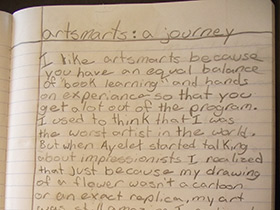 artsmarts: a journey
I like artsmarts because
you have an equal balance
of "book learning" and hands
on experience so that you
get alot out of the program.
I used to think that I was
the worst artist in the world.
But when Ayelet started talking
about impressionists I realized
that just because my drawing
of a flower wasn't a cartoon
or an exact replica, my art
was still